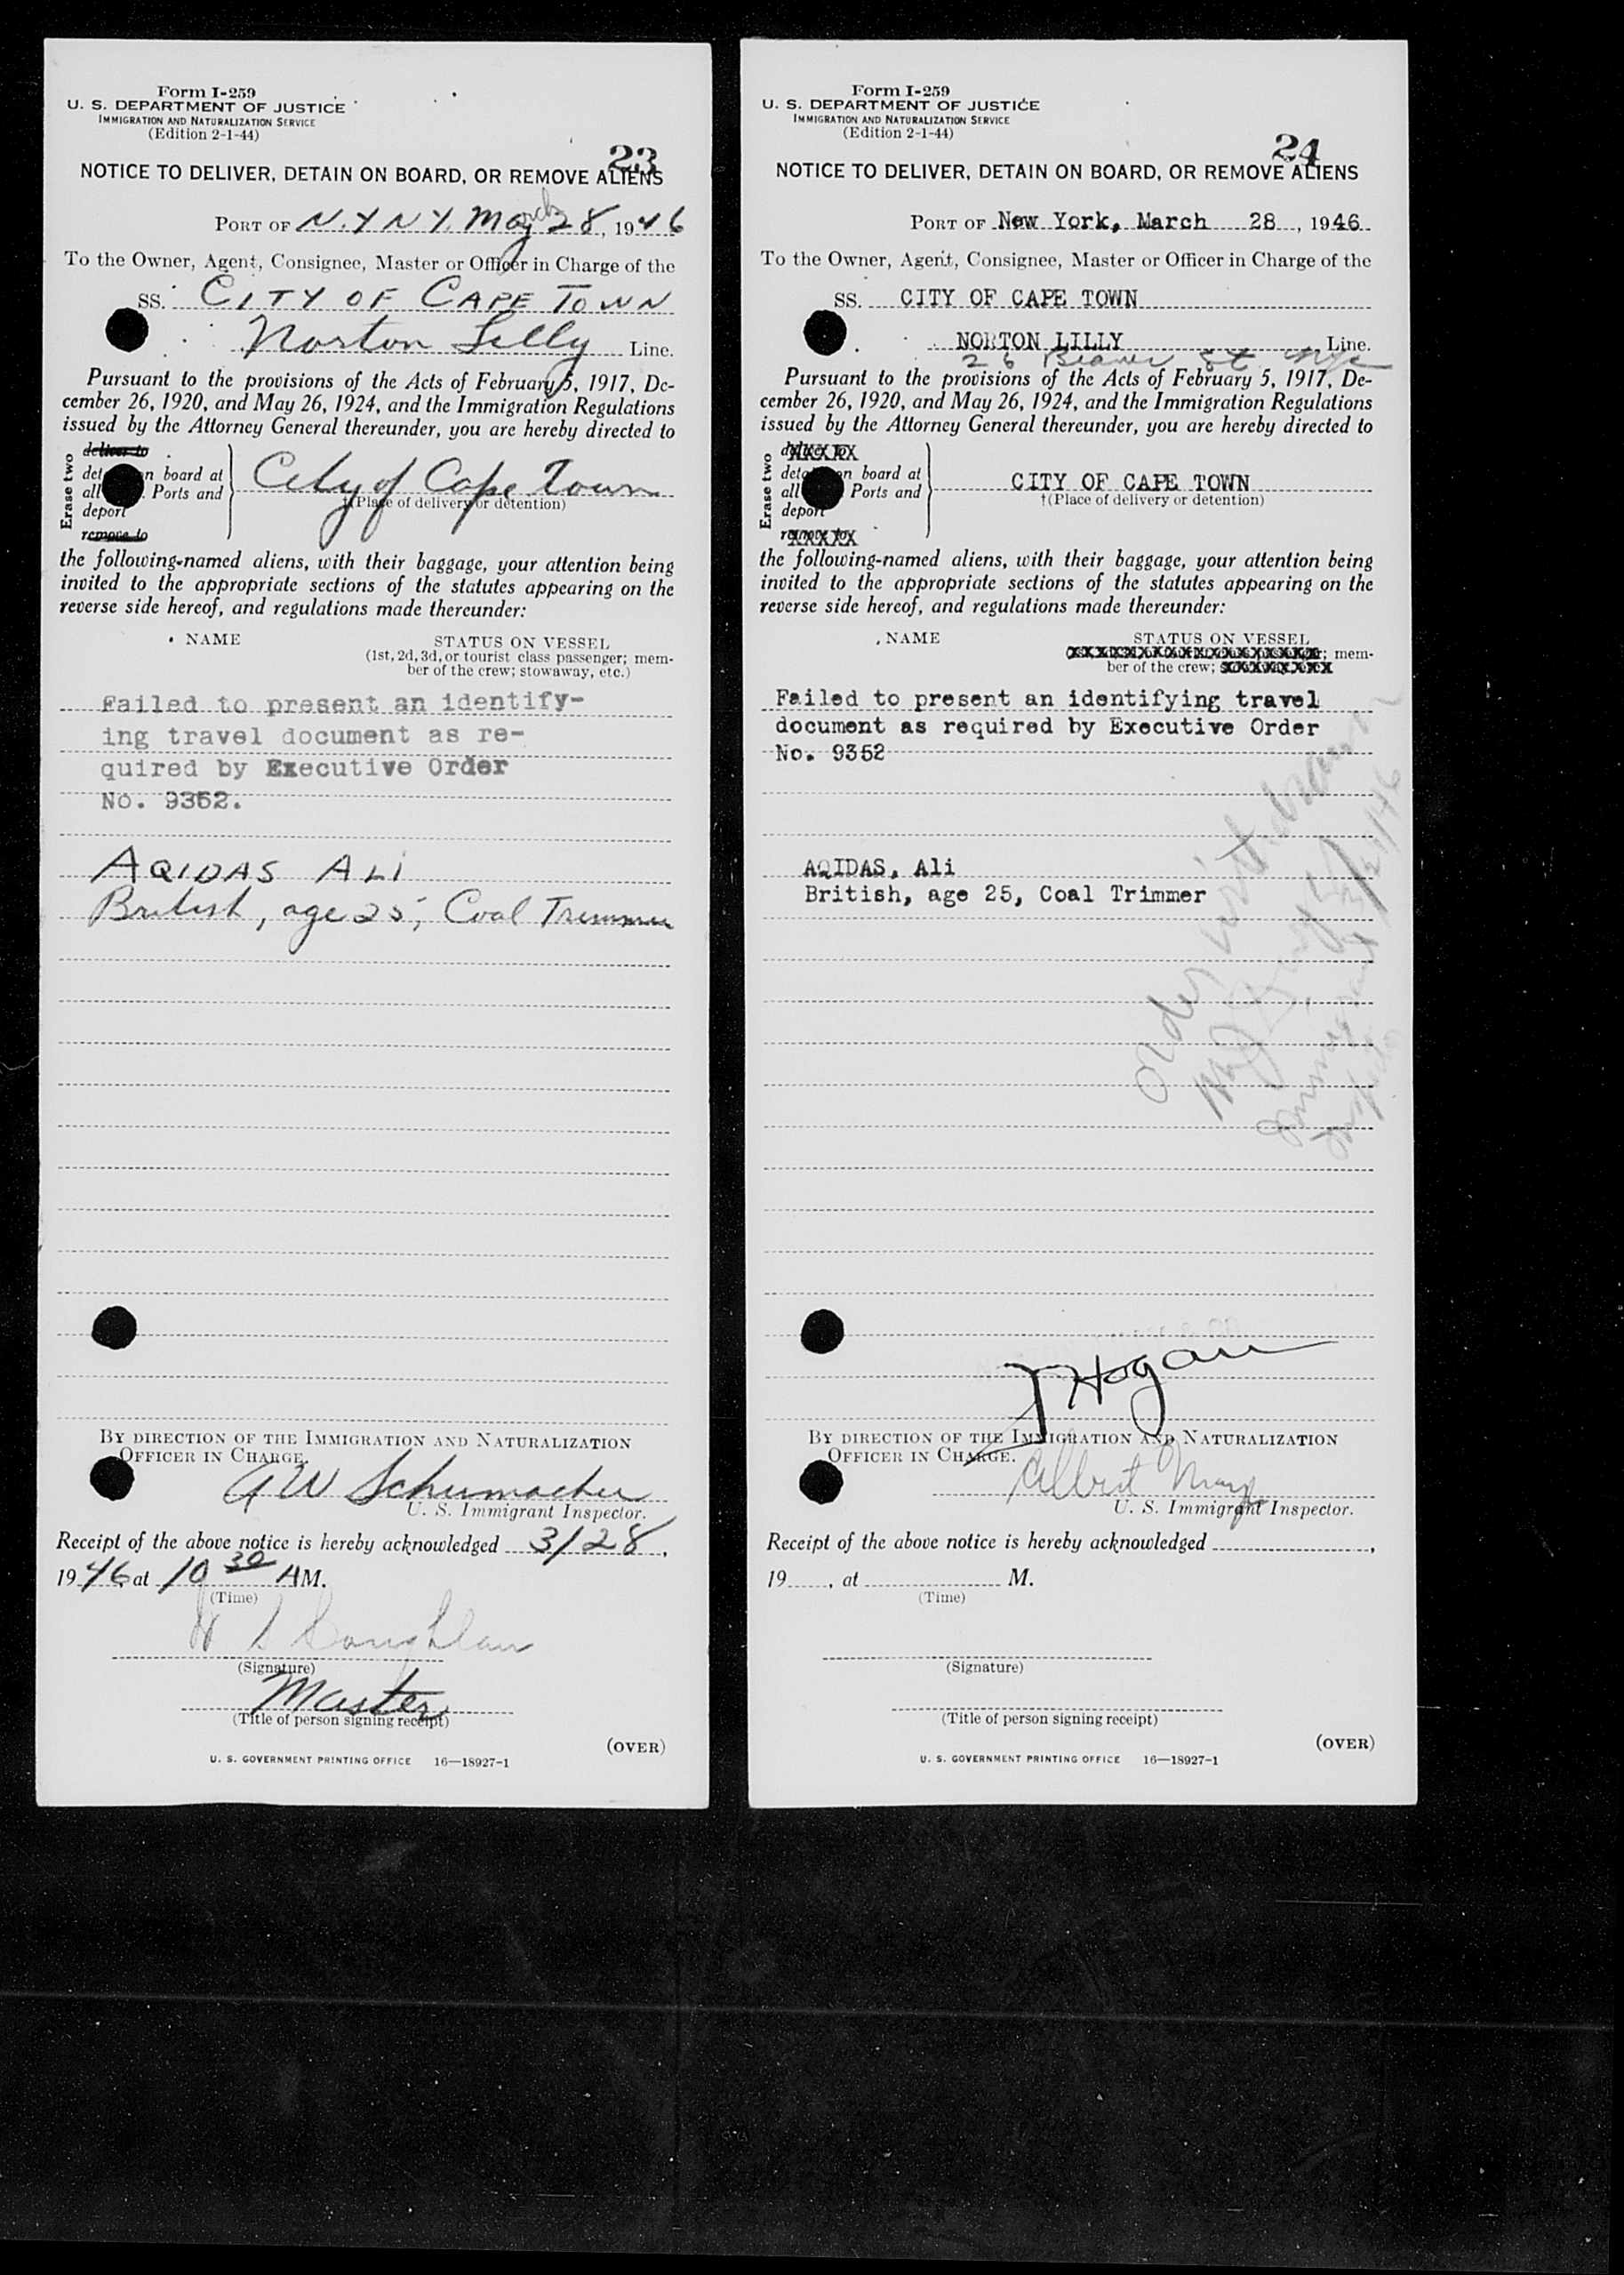 Form I-259
U. S. DEPARTMENT OF JUSTICE
IMMIGRATION AND NATURALIZATION SERVICE
(Edition 2-1-44)
23
NOTICE TO DELIVER, DETAIN ON BOARD, OR REMOVE ALIENS
PORT OF N.Y N.Y. March 28, 1946
To the Owner, Agent, Consignee, Master or Officer in Charge of the
SS. CITY OF CAPE TOWN
Norton Lilly Line.
Pursuant to the provisions of the Acts of February 5, 1917, De-
cember 26, 1920, and May 26, 1924, and the Immigration Regulations
issued by the Attorney General thereunder, you are hereby directed to
Erase two
deliver to
det n board at
all . Ports and
deport
remove to
City of Cape Town
†(Place of delivery or detention)
the following-named aliens, with their baggage, your attention being
invited to the appropriate sections of the statutes appearing on the
reverse side hereof, and regulations made thereunder:
NAME STATUS ON VESSEL
(1st, 2d, 3d, or tourist class passenger; mem-
ber of the crew; stowaway, etc.)
Failed to present an identify-
ing travel document as re-
quired by Executive Order
No. 9352.
AQIDAS ALi
British, age 25, Coal Trimmer
BY DIRECTION OF THE IMMIGRATION AND NATURALIZATION
OFFICER IN CHARGE.
A W Schumacher
U. S. Immigrant Inspector.
Receipt of the above notice is hereby acknowledged 3/28,
1946 at 10 30 AM.
(Time)
(Signature)
Master
(Title of person signing receipt)
(OVER)
U. S. GOVERNMENT PRINTING OFFICE 16—18927-1
Form I-259
U. S. DEPARTMENT OF JUSTICE
IMMIGRATION AND NATURALIZATION SERVICE
(Edition 2-1-44)
24
NOTICE TO DELIVER, DETAIN ON BOARD, OR REMOVE ALIENS
PORT OF New York, March 28, 1946
To the Owner, Agent, Consignee, Master or Officer in Charge of the
SS. CITY OF CAPE TOWN
NORTON LILLY Line.
26 Beaver St NYC
Pursuant to the provisions of the Acts of February 5, 1917, De-
cember 26, 1920, and May 26, 1924, and the Immigration Regulations
issued by the Attorney General thereunder, you are hereby directed to
Erase two
deliver to
deta n board at
all Ports and
deport
remove to
CITY OF CAPE TOWN
†(Place of delivery or detention)
the following-named aliens, with their baggage, your attention being
invited to the appropriate sections of the statutes appearing on the
reverse side hereof, and regulations made thereunder:
NAME STATUS ON VESSEL
mem-
ber of the crew;
Failed to present an identifying travel
document as required by Executive Order
No. 9352
AQIDAS, Ali
British, age 25, Coal Trimmer
Order withdrawn
Immigrant
Inspector
J Hogan
BY DIRECTION OF THE IMMIGRATION AND NATURALIZATION
OFFICER IN CHARGE.
Albert
U. S. Immigrant Inspector.
Receipt of the above notice is hereby acknowledged ,
19 , at M.
(Time)
(Signature)
(Title of person signing receipt)
(OVER)
U. S. GOVERNMENT PRINTING OFFICE 16—18927-1